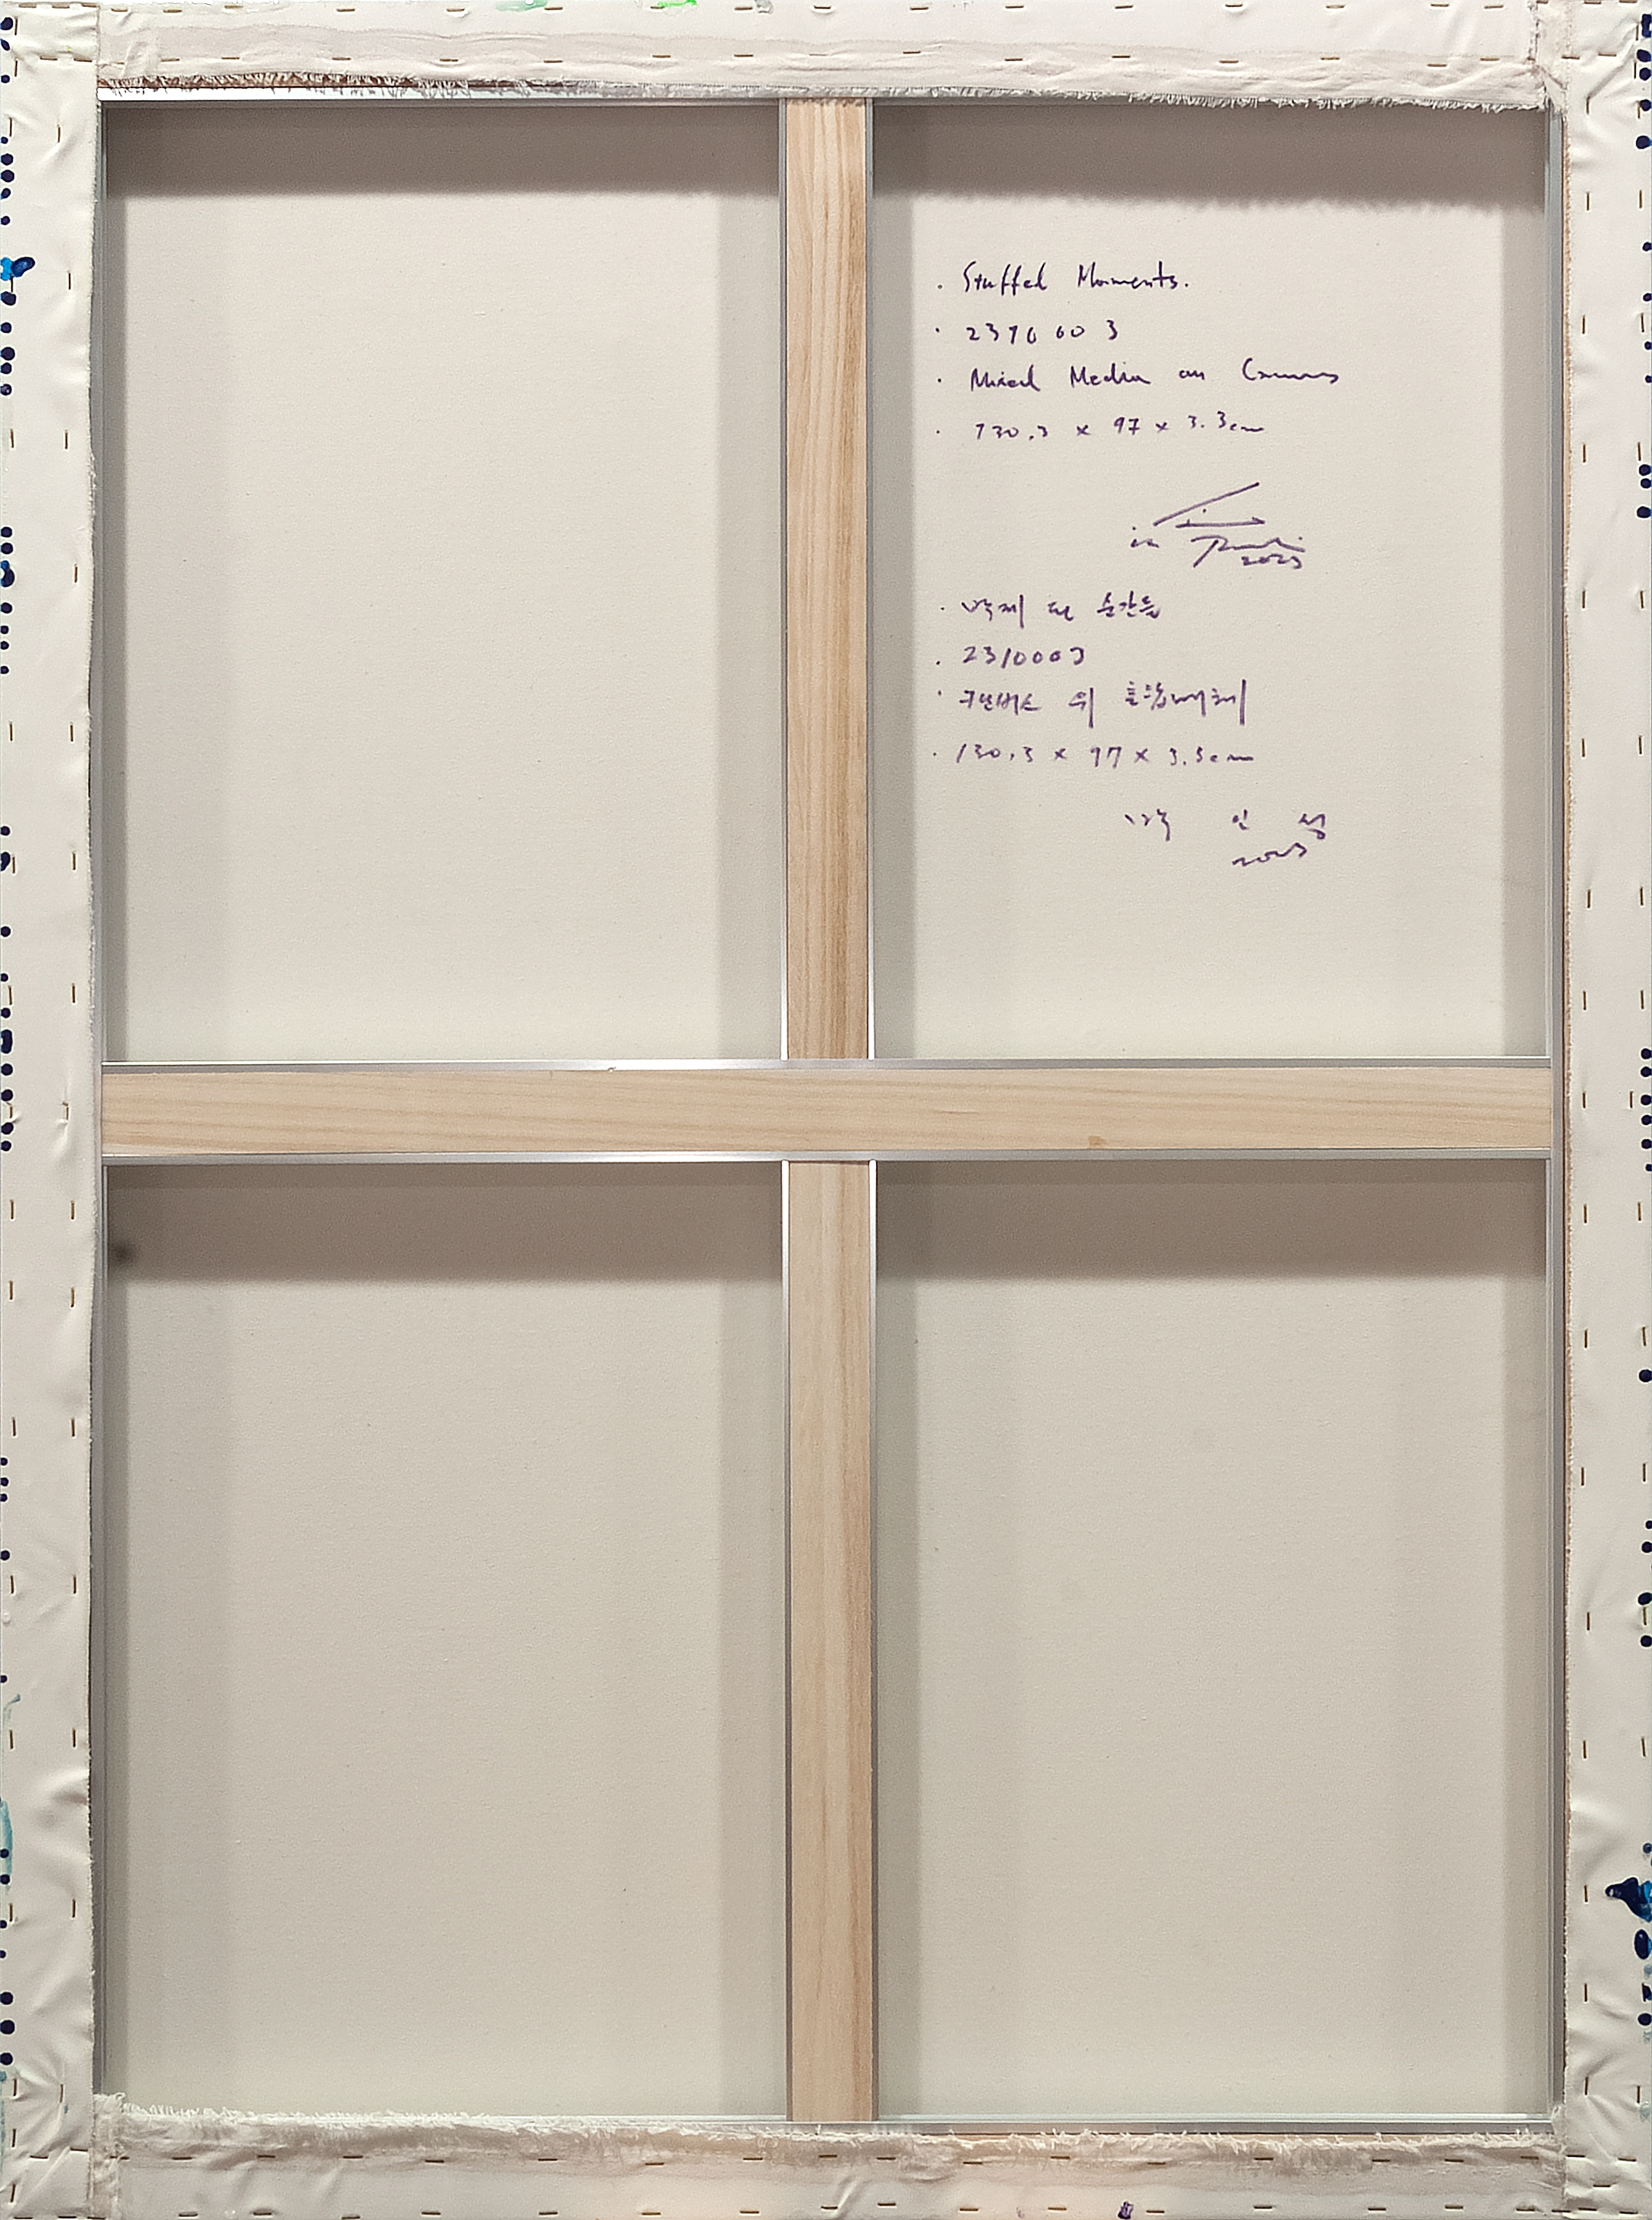 · Stuffed Moments.
· 2310003
· Mixed Media on Canvas
· 130.3 x 97 x 3.3cm
in
2023
· 박제 된 순간들
· 2310003
· 캔버스 위 혼합매체
· 130.3 x 97 x 3.3cm
박 인 성
2023